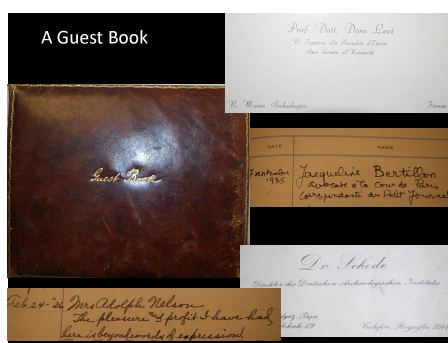 A Guest Book
Prof. Dott. Doro Levi
R. Ispettore alle Antichità d'Etruria
R. Museo Archeologico Firenze
Guest Book
DATE NAME
Jacqueline Bertillon
1935 avocate à la cour de Paris
correspondante du Petit Journal
Dr. Schede
Direktor des Deutschen Archäologischen Institutes
Feb. 24-'36 Mrs Adolph Nelson
The pleasure & profit I have had
here is beyond words of expression.